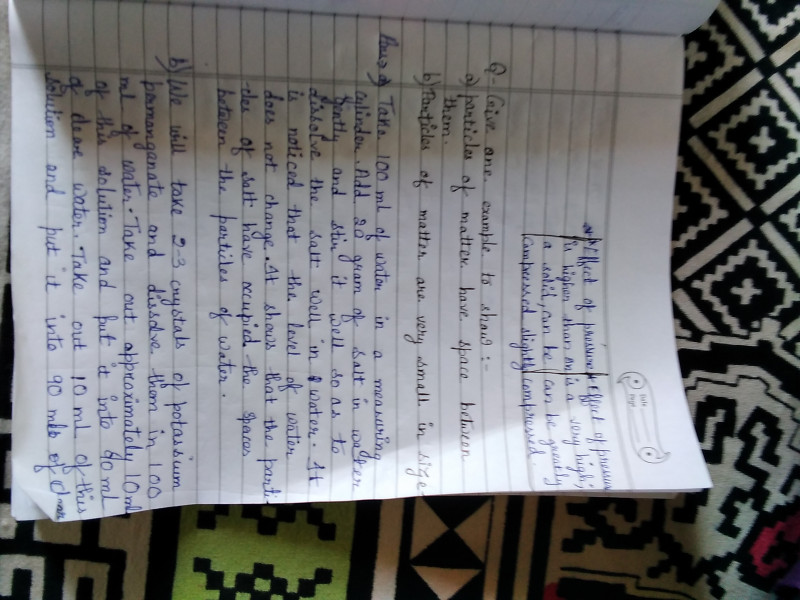 Date
Page
Effect of pressure | Effect of pressure
is higher than on | is a very high,
a solid, can be | can be greatly
compressed slightly | compressed.
Q. Give one example to show :-
a) particles of matter have space between
them.
b) Particles of matter are very small in size
Ans a) Take 100 ml of water in a measuring
cylinder. Add 20 gram of salt in water
gently and stir it well so as to
dissolve the salt well in water. It
is noticed that the level of water
does not change. It shows that the parti-
cles of salt have occupied the spaces
between the particles of water.
b) We will take 2-3 crystals of potassium
permanganate and dissolve them in 100
ml of water. Take out approximately 10 ml
of this solution and put it into 90 ml
of clear water. Take out 10 ml of this
solution and put it into 90 mlb of